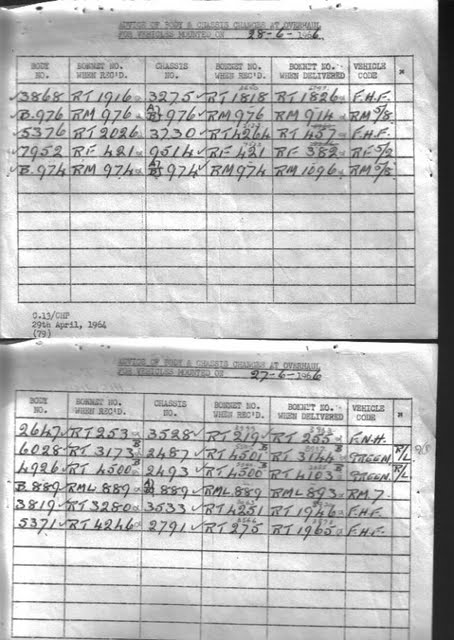 ADVICE OF BODY & CHASSIS CHANGES AT OVERHAUL
FOR VEHICLES MOUNTED ON 28-6-1966
BODY NO. BONNET NO. WHEN REC'D. CHASSIS NO. BONNET NO. WHEN REC'D. BONNET NO. WHEN DELIVERED VEHICLE CODE
3868 RT 1916 3275 RT 1818 RT 1826 F.H.F.
B.976 RM 976 976 RM 976 RM 914 RM 5/8
5376 RT 2026 3730 RT 4264 RT 457 F.H.F.
7952 RF 421 9514 RF 421 RF 382 RF 5/2
B.974 RM 974 974 RM 974 RM 1096 RM 5/8
C.13/CHF
29th April, 1964
(79)
ADVICE OF BODY & CHASSIS CHANGES AT OVERHAUL
FOR VEHICLES MOUNTED ON 27-6-1966
BODY NO. BONNET NO. WHEN REC'D. CHASSIS NO. BONNET NO. WHEN REC'D. BONNET NO. WHEN DELIVERED VEHICLE CODE
2647 RT 253 3528 RT 219 RT 255 F.N.H.
6028 RT 3173 2487 RT 4501 RT 3144 GREEN R/L
4926 RT 4500 2493 RT 4500 RT 4103 GREEN R/L
B.889 RML 889 889 RML 889 RML 893 RM 7.
3819 RT 3280 3533 RT 4251 RT 1946 F.H.F.
5371 RT 4246 2791 RT 275 RT 1965 F.H.F.